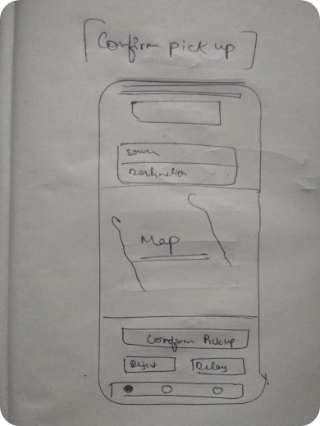 Confirm pick up
Source
Destination
Map
Confirm Pickup
Reject
Delay